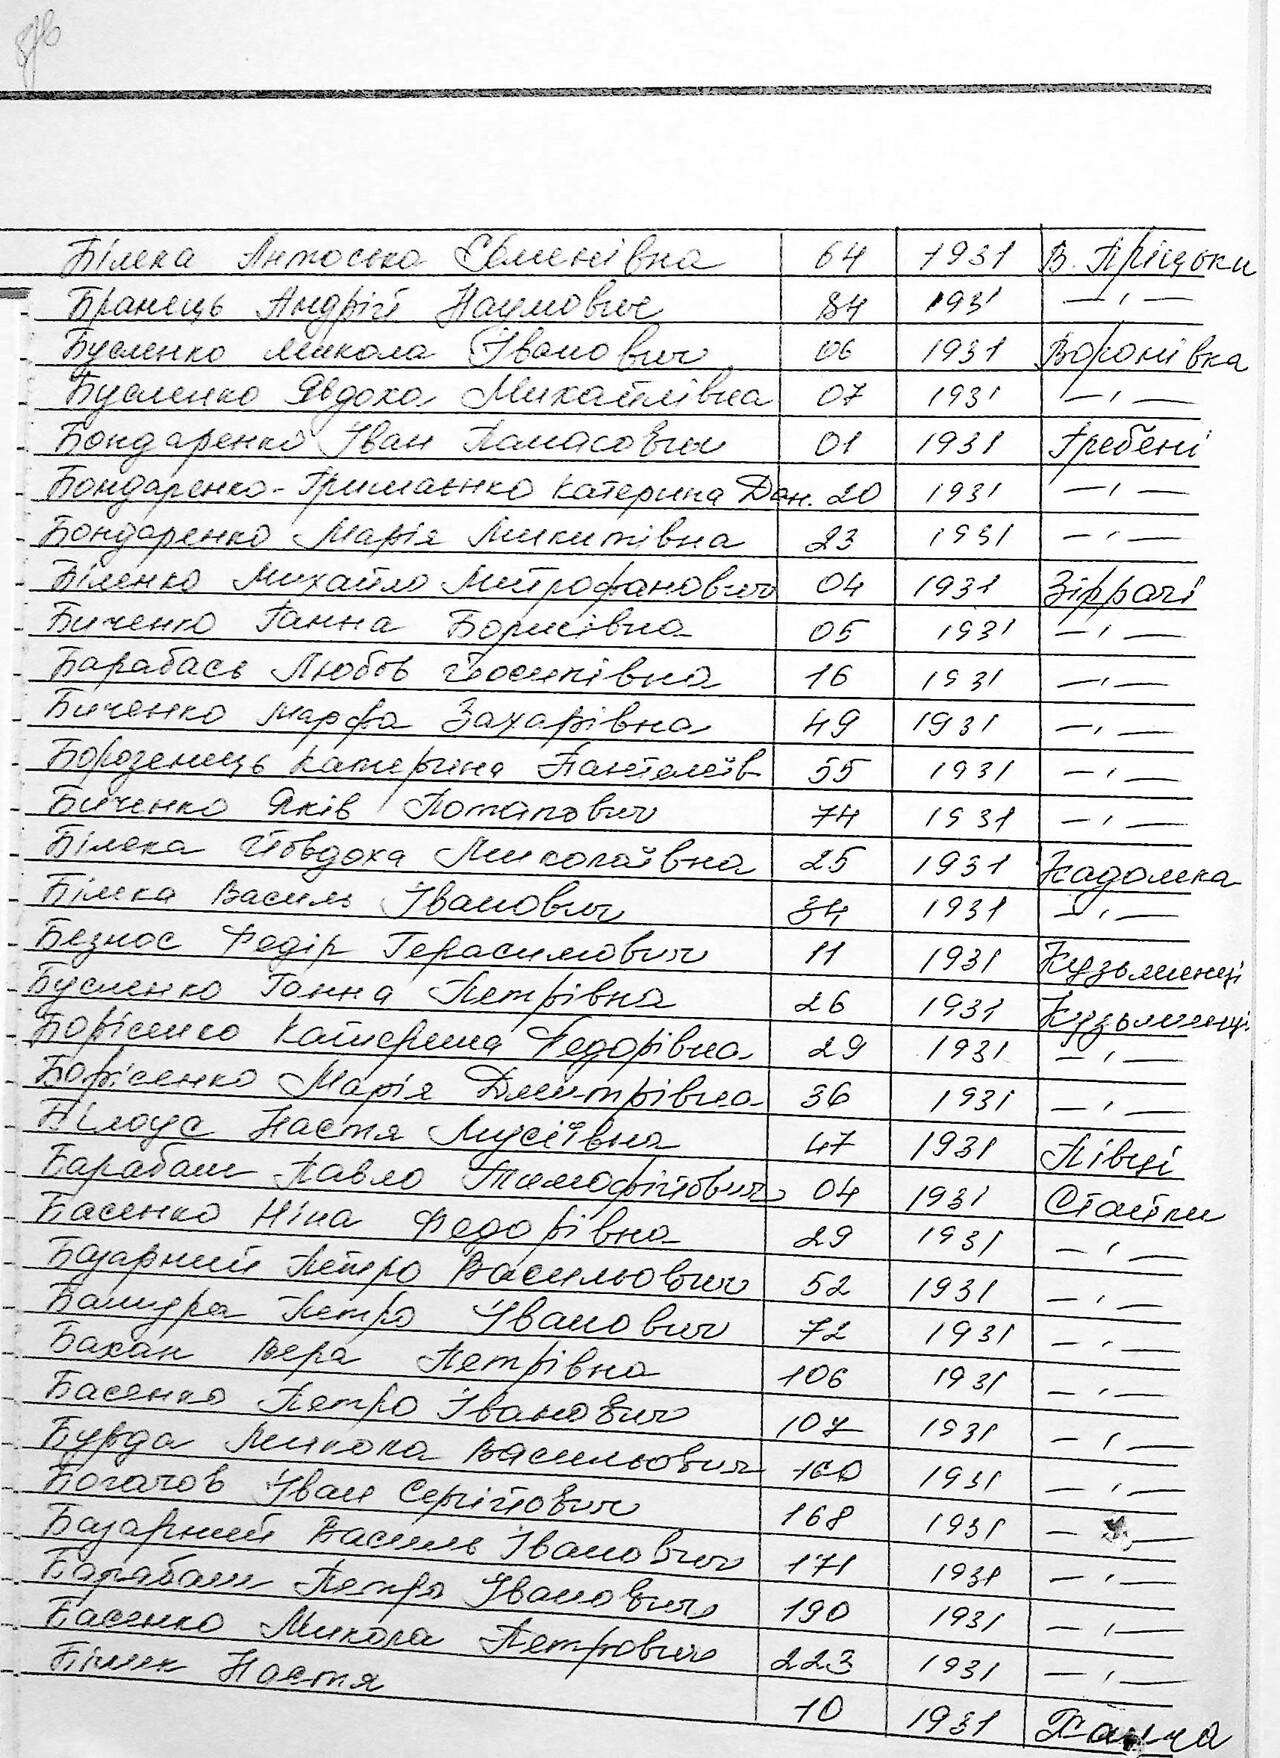 Білека Антоська Семенівна 64 1931 В. Пріцьки
Бранець Андрій Наумович 84 1931 —"—
Бусленко Микола Іванович 06 1931 Воронівка
Бусленко Явдоха Михайлівна 07 1931 —"—
Бондаренко Іван Панасович 01 1931 Гребені
Бондаренко-Гримаєнко Катерина Дан. 20 1931 —"—
Бондаренко Марія Микитівна 23 1931 —"—
Біленко Михайло Митрофанович 04 1931
Биченко Ганна Борисівна 05 1931 —"—
Барабась Любов Йосипівна 16 1931 —"—
Биченко Марфа Захарівна 49 1931 —"—
Борозенець Катерина Пантелеїв 55 1931 —"—
Биченко Яків Потапович 74 1931 —"—
Білека Йовдоха Миколаївна 25 1931 Кадомка
Білека Василь Іванович 34 1931 —"—
Безнос Федір Герасимович 11 1931 Кузьменці
Бусленко Ганна Петрівна 26 1931 Кузьменці
Борісенко Катерина Федорівна 29 1931 —"—
Борісенко Марія Дмитрівна 36 1931 —"—
Білоус Настя Мусіївна 47 1931 Півці
Барабаш Павло Тимофійович 04 1931 Стайки
Басенко Ніна Федорівна 29 1931 —"—
Базарний Петро Васильович 52 1931 —"—
Бандура Петро Іванович 72 1931 —"—
Бахан Вера Петрівна 106 1931 —"—
Басенко Петро Іванович 107 1931 —"—
Бурда Микола Васильович 160 1931 —"—
Богачов Іван Сергійович 168 1931
Базарний Василь Іванович 171 1931 —"—
Барабаш Петро Іванович 190 1931 —"—
Басенко Микола Петрович 223 1931 —"—
Білик Настя 10 1931